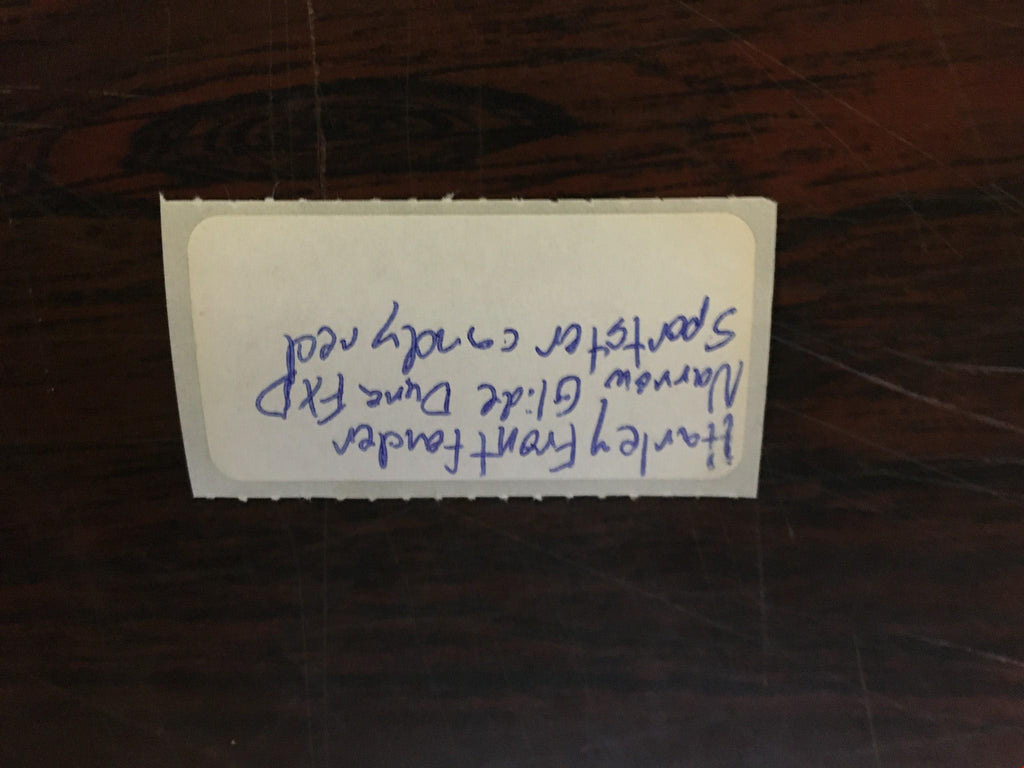 Harley Front fender
Narrow Glide Dyna FXD
Sportster candy red